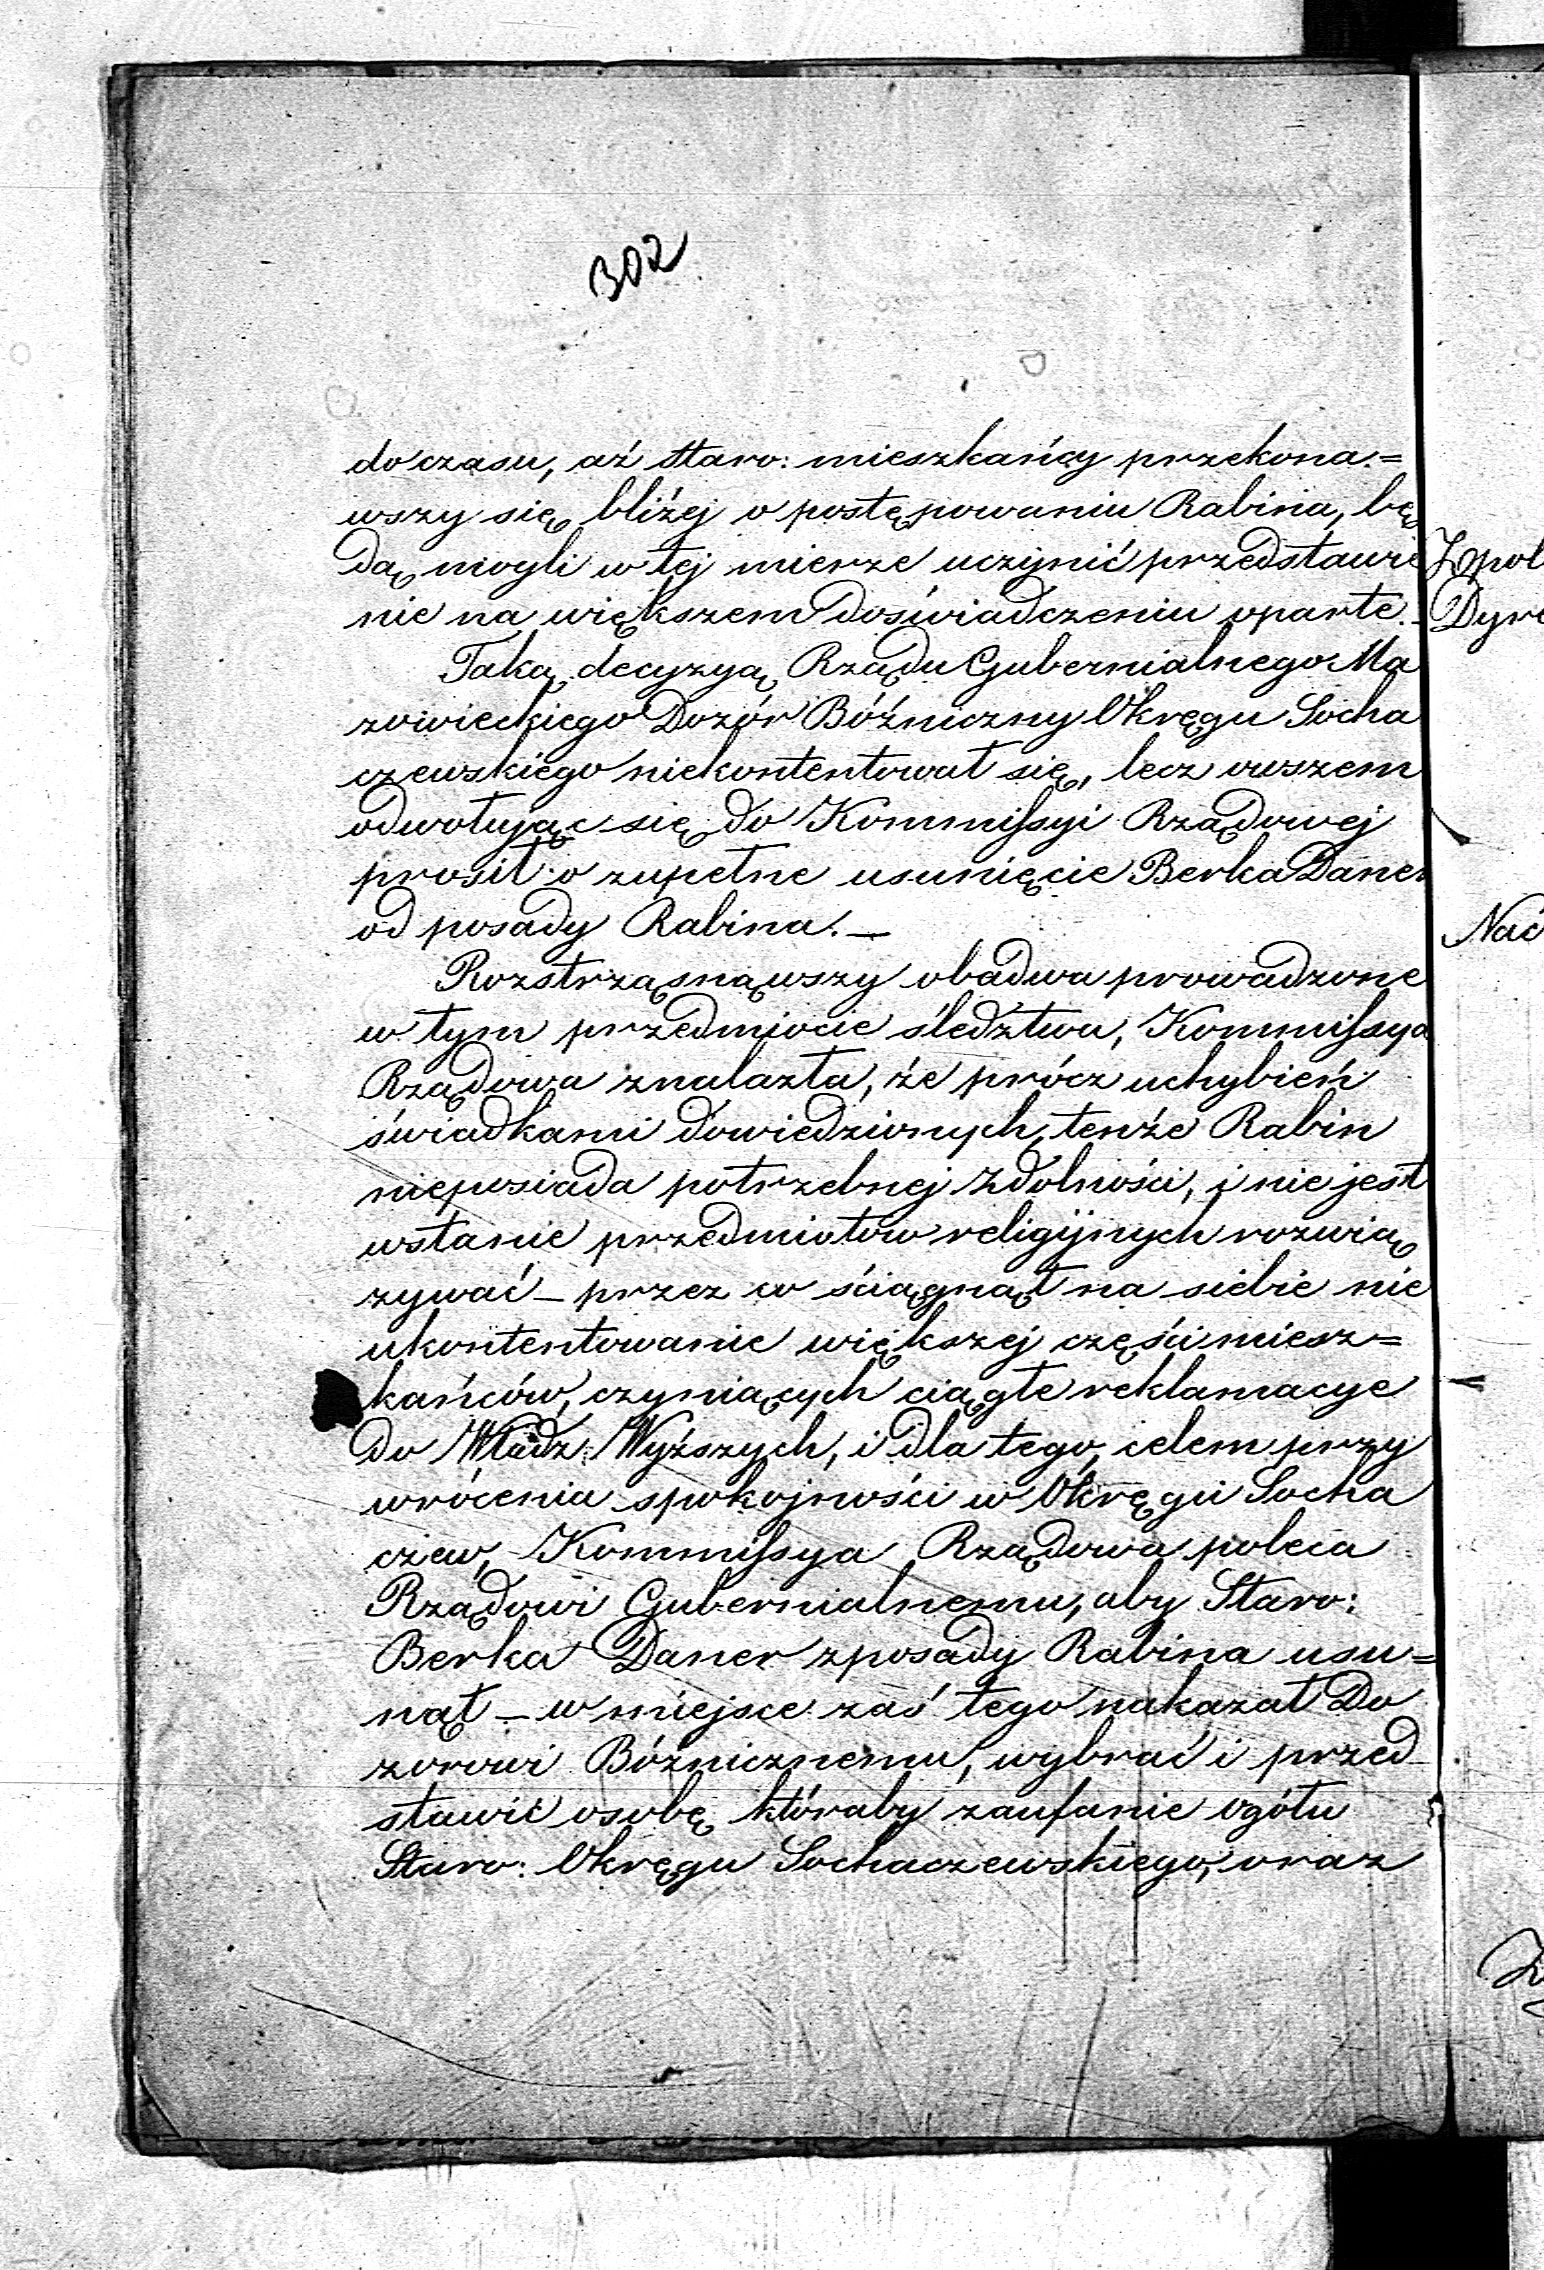 302
do czasu, aż Staro: mieszkańcy przekona=
wszy się bliżej o postępowaniu Rabina, bę
dą mogli w tej mierze uczynić przedstawie
nie na większem doświadczeniu oparte._
Taką decyzyą Rządu Gubernialnego Ma
zowieckiego Dozór Bóźniczny Okręgu Socha
czewskiego niekontentował się, lecz owszem
odwołując się do Kommissyi Rządowej
prosił o zupełne usunięcie Berka Daner
od posady Rabina._
Rozstrząsnąwszy obadwa prowadzone
w tym przedmiocie śledztwa, Kommissya
Rządowa znalazła, że prócz uchybień
świadkami dowiedzionych, tenże Rabin
nieposiada potrzebnej zdolności, i nie jest
wstanie przedmiotow religijnych rozwią
zywać _ przez co ściągnął na siebie nie
ukontentowanie większej części miesz=
kańców, czyniących ciągłe reklamacye
do Władz Wyższych, i dla tego, celem przy
wrócenia spokojności w Okręgu Socha
czew, Kommissya Rządowa poleca
Rządowi Gubernialnemu, aby Staro:
Berka Daner zposady Rabina usu=
nął _ w miejsce zaś tego nakazał Do
zorowi Bóżnicznemu, wybrać i przed
stawić osobę któraby zaufanie ogółu
Staro: Okręgu Sochaczewskiego, oraz
Dyre